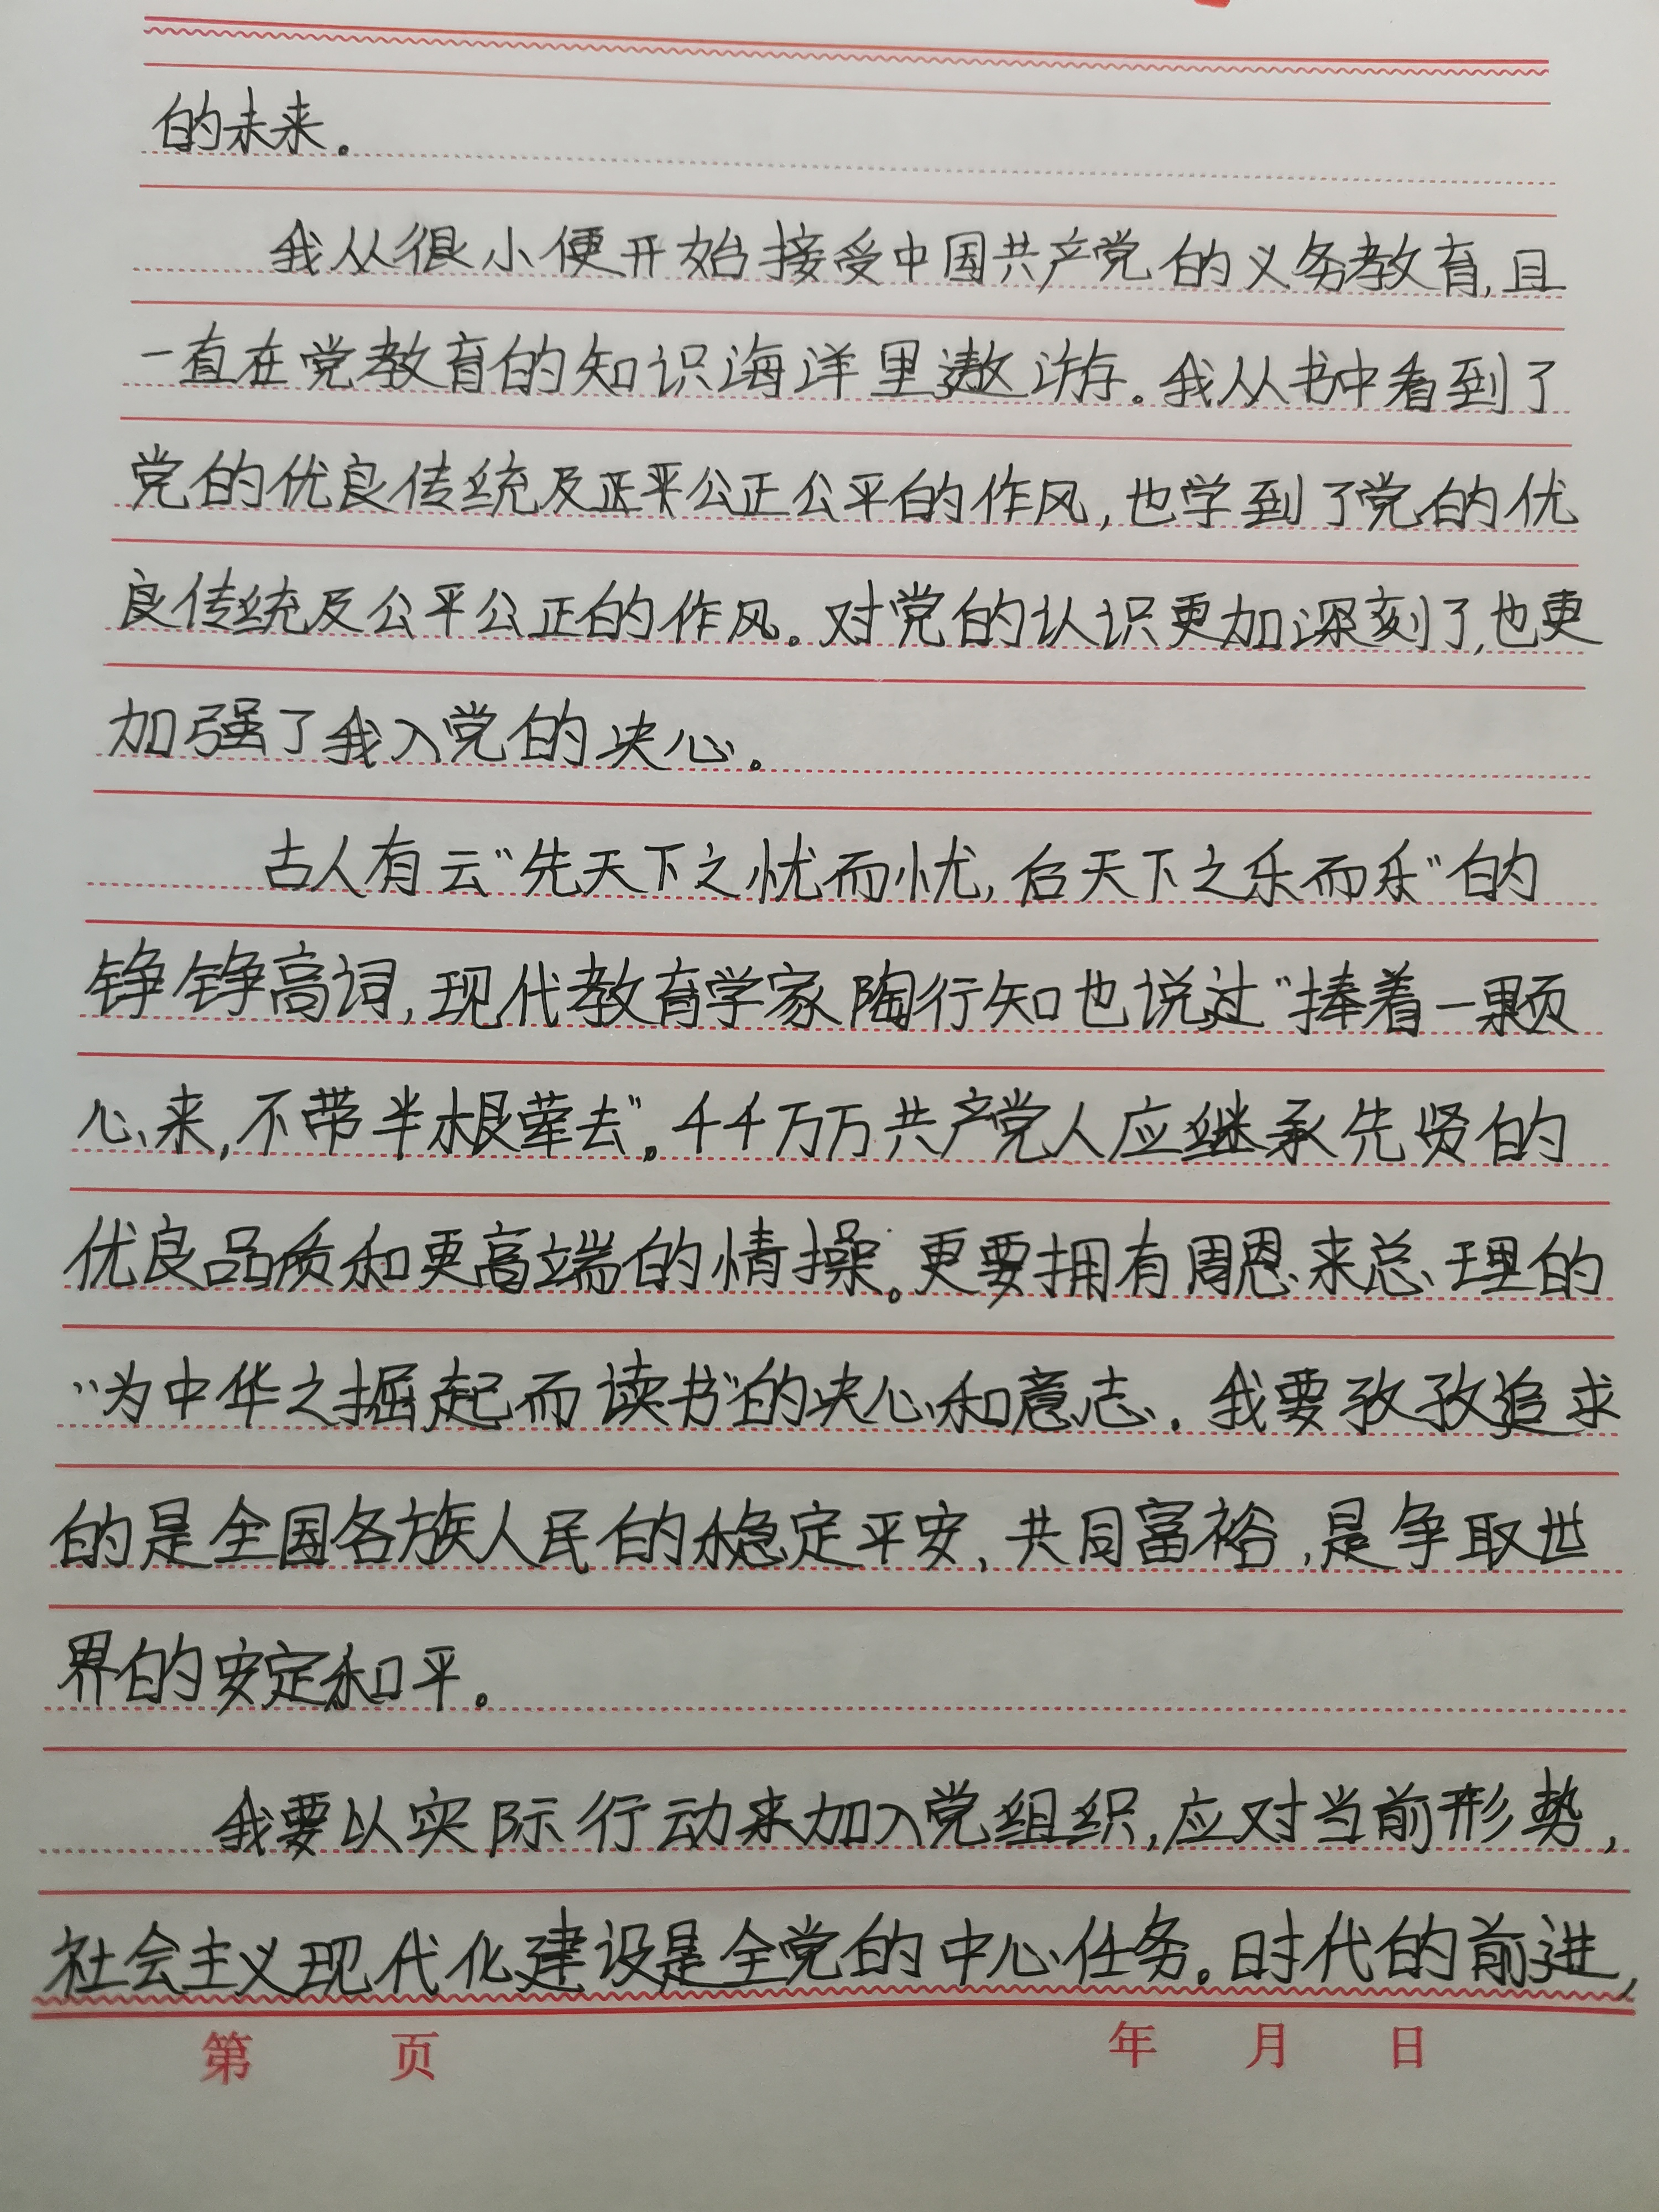 的未来。
我从很小便开始接受中国共产党的义务教育,且
一直在党教育的知识海洋里遨游。我从书中看到了
党的优良传统及正平公正公平的作风,也学到了党的优
良传统及公平公正的作风。对党的认识更加深刻了,也更
加强了我入党的决心。
古人有云“先天下之忧而忧,后天下之乐而乐”的
铮铮高词,现代教育学家陶行知也说过“捧着一颗
心来,不带半根荤去”。千千万万共产党人应继承先贤的
优良品质和更高端的情操。更要拥有周恩来总理的
“为中华之掘起而读书”的决心和意志.我要孜孜追求
的是全国各族人民的稳定平安,共同富裕,是争取世
界的安定和平。
我要以实际行动来加入党组织,应对当前形势,
社会主义现代化建设是全党的中心任务。时代的前进,
第 页 年 月 日